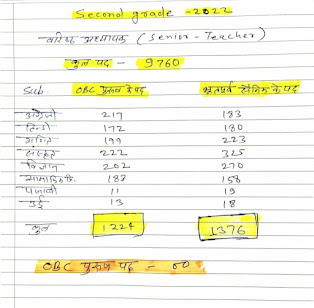 Second grade - 2022
वरिष्ठ अध्यापक (Senior - Teacher)
कुल पद - 9760
Sub OBC पुरुष के पद भूतपूर्व सैनिक के पद
अंग्रेजी 217 183
हिन्दी 172 180
गणित 199 223
संस्कृत 222 325
विज्ञान 202 270
सामाजिक वि. 188 158
पंजाबी 11 19
उर्दू 13 18
कुल 1224 1376
OBC पुरुष पद - 00